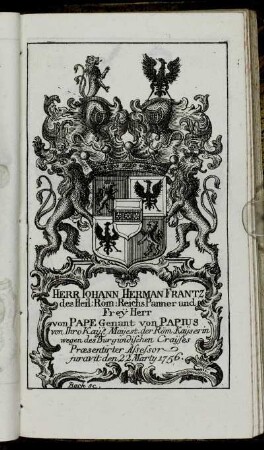 HERR IOHANN HERMAN FRANTZ
des Heil: Röm: Reichs Panner und
Freÿ Herr
von PAPE Genant von PAPIUS
von Ihro Kaÿs: Maÿest: der Röm. Kaÿserin
wegen des Burgundischen Craÿses
Præsentirter Assessor
juravit den 22 Martÿ 1756.
Beck sc.